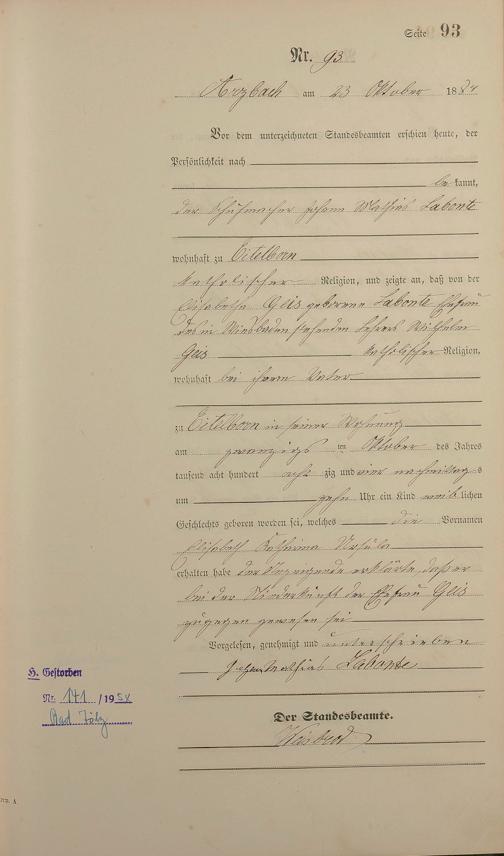 Seite 93
Nr. 93
Arzbach am 23 Oktober 1884
Vor dem unterzeichneten Standesbeamten erschien heute, der
Persönlichkeit nach
be kannt,
der Schuhmacher Johann Mathias Labonte
wohnhaft zu Eitelborn
katholischer Religion, und zeigte an, daß von der
Elisabetha Geis geborene Labonte Ehefrau
des in Wiesbaden stehenden Lehrers Wilhelm
Geis katholischer Religion,
wohnhaft bei ihrem Vater
zu Eitelborn in seiner Wohnung
am zwanzigsten Oktober des Jahres
tausend acht hundert acht zig und vier nachmittags
um zehn Uhr ein Kind weib lichen
Geschlechts geboren worden sei, welches die Vornamen
Elisabeth Katharina Ursula
erhalten habe der Anzeigende erklärte, daß er
bei der Niederkunft der Ehefrau Geis
zugegen gewesen sei
Vorgelesen, genehmigt und unterschrieben
Johann Mathias Labonte
H. Gestorben
Nr. 141 /1958
Bad Tölz
Der Standesbeamte.